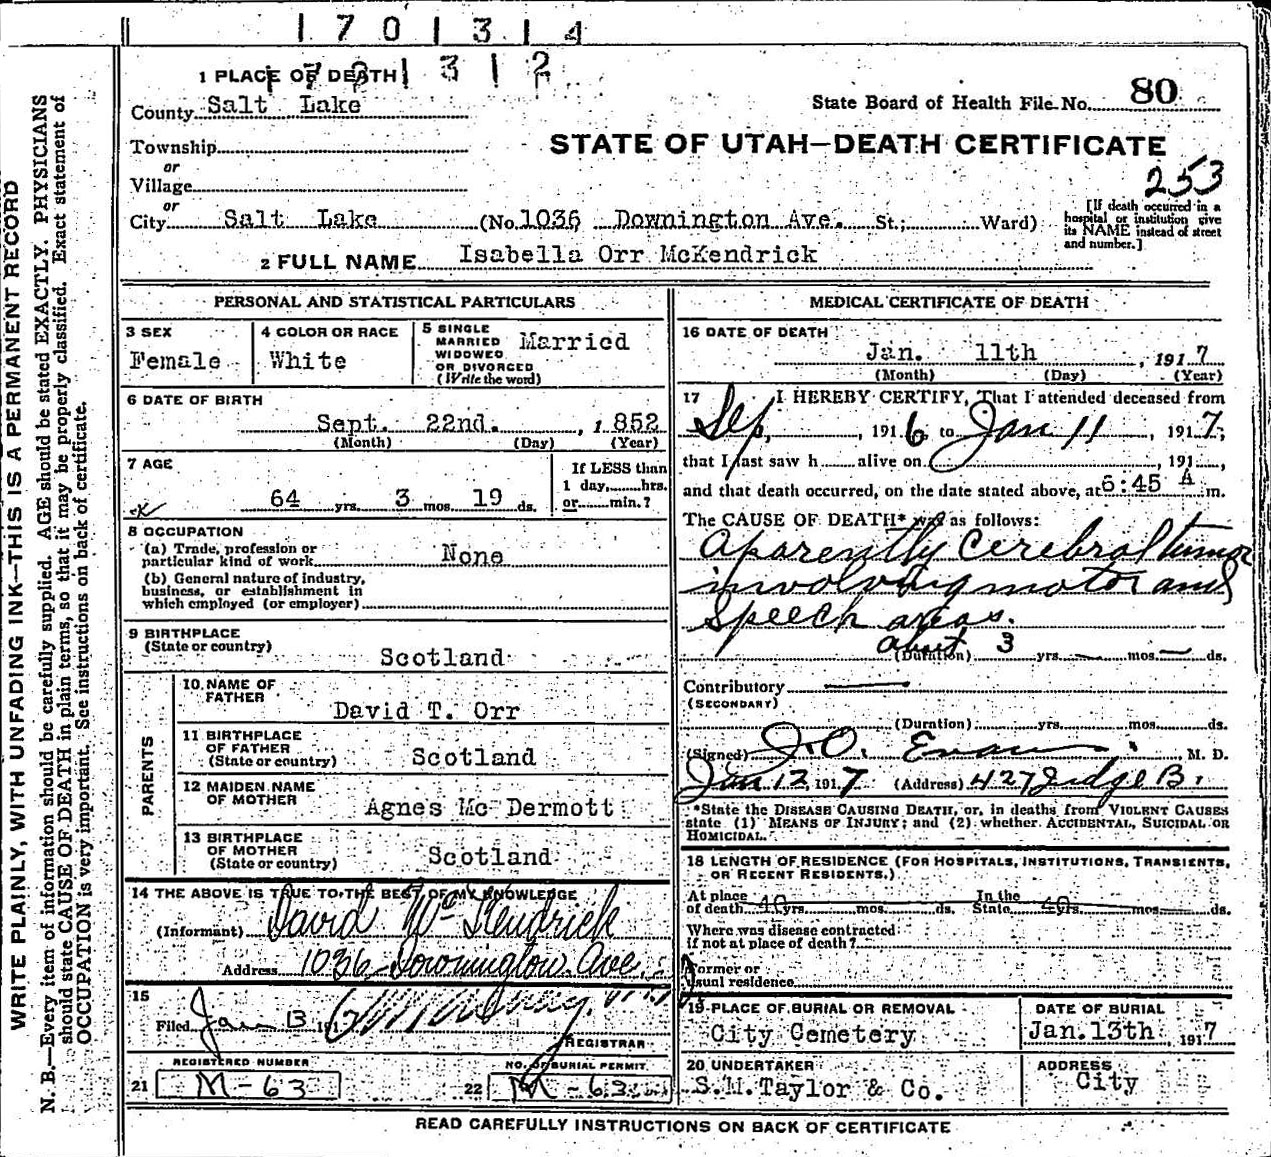 1701314
1 PLACE OF DEATH
1701312
County Salt Lake
State Board of Health File No. 80
Township
STATE OF UTAH—DEATH CERTIFICATE
or
Village
253
or
City Salt Lake (No. 1036 Downington Ave. St.; Ward)
[If death occurred in a
hospital or institution give
its NAME instead of street
and number.]
2 FULL NAME Isabella Orr McKendrick
PERSONAL AND STATISTICAL PARTICULARS
3 SEX
Female
4 COLOR OR RACE
White
5 SINGLE
MARRIED
WIDOWED
OR DIVORCED
(Write the word)
Married
6 DATE OF BIRTH
Sept. 22nd. , 1852
(Month) (Day) (Year)
7 AGE
64 yrs. 3 mos. 19 ds.
If LESS than
1 day, hrs.
or min.?
8 OCCUPATION
(a) Trade, profession or
particular kind of work None
(b) General nature of industry,
business, or establishment in
which employed (or employer)
9 BIRTHPLACE
(State or country)
Scotland
PARENTS
10 NAME OF
FATHER
David T. Orr
11 BIRTHPLACE
OF FATHER
(State or country) Scotland
12 MAIDEN NAME
OF MOTHER
Agnes Mc Dermott
13 BIRTHPLACE
OF MOTHER
(State or country) Scotland
14 THE ABOVE IS TRUE TO THE BEST OF MY KNOWLEDGE
(Informant) David McKendrick
Address 1036 Downington Ave.
15
Filed Jan 13 191
REGISTRAR
REGISTERED NUMBER
21 M-63
NO. OF BURIAL PERMIT
22 M-63
MEDICAL CERTIFICATE OF DEATH
16 DATE OF DEATH
Jan. 11th , 1917
(Month) (Day) (Year)
17 I HEREBY CERTIFY, That I attended deceased from
Sep, , 1916 to Jan 11 , 1917;
that I last saw h alive on , 191 ,
and that death occurred, on the date stated above, at 6:45 A m.
The CAUSE OF DEATH* was as follows:
Aparently Cerebral tumor
involving motor and
Speech areas.
about
(Duration) 3 yrs. — mos. — ds.
Contributory —
(SECONDARY)
(Duration) yrs. mos. ds.
(Signed) J.O. Evans M. D.
Jan 12, 1917 (Address) 427 Judge B.
*State the DISEASE CAUSING DEATH, or, in deaths from VIOLENT CAUSES
state (1) MEANS OF INJURY; and (2) whether ACCIDENTAL, SUICIDAL OR
HOMICIDAL.
18 LENGTH OF RESIDENCE (FOR HOSPITALS, INSTITUTIONS, TRANSIENTS,
OR RECENT RESIDENTS.)
At place In the
of death 40 yrs. mos. ds. State 40 yrs. mos. ds.
Where was disease contracted
if not at place of death?
Former or
usual residence
19 PLACE OF BURIAL OR REMOVAL
City Cemetery
DATE OF BURIAL
Jan. 13th 1917
20 UNDERTAKER
S.M. Taylor & Co.
ADDRESS
City
READ CAREFULLY INSTRUCTIONS ON BACK OF CERTIFICATE
WRITE PLAINLY, WITH UNFADING INK—THIS IS A PERMANENT RECORD
N. B.—Every item of information should be carefully supplied. AGE should be stated EXACTLY. PHYSICIANS
should state CAUSE OF DEATH in plain terms, so that it may be properly classified. Exact statement of
OCCUPATION is very important. See instructions on back of certificate.